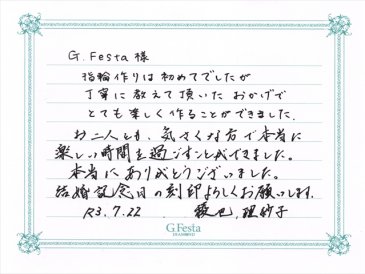 G.Festa 様
指輪作りは初めてでしたが
丁寧に教えて頂いたおかげで
とても楽しく作ることができました.
お二人とも、気さくな方で本当に
楽しい時間を過ごすことができました。
本当にありがとうございました。
結婚記念日の刻印よろしくお願いします.
R3.7.22. 理紗子
G.Festa